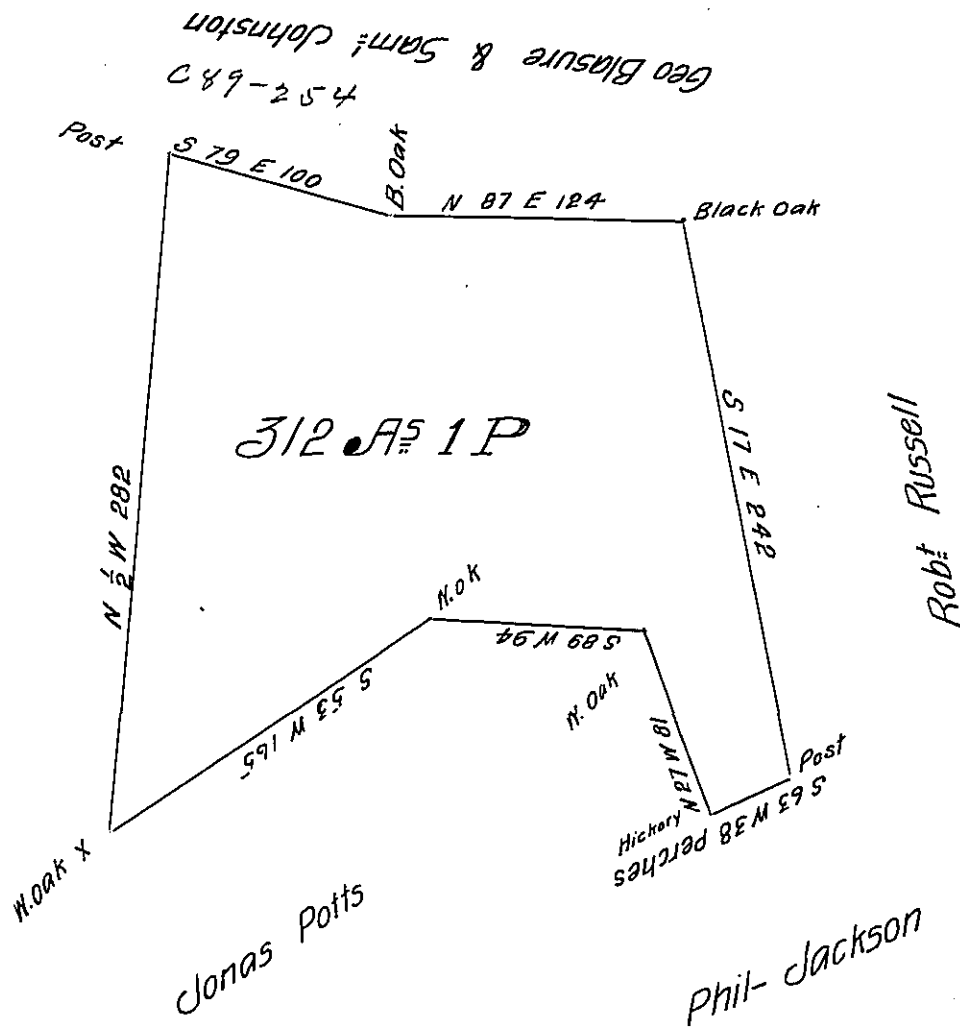 Geo Blasure & Sam: Johnston
C89-254
Post
S 79 E 100
B. Oak
N 87 E 124
Black Oak
312 As 1 P
S 17 E 242
Robt Russell
N ½ W 282
W. Ok
S 89 W 94
W. Oak
S 53 W 165
N 27 W 81
Post
S 63 W 38 perches
Hickory
W. Oak X
Jonas Potts
Phil- Jackson